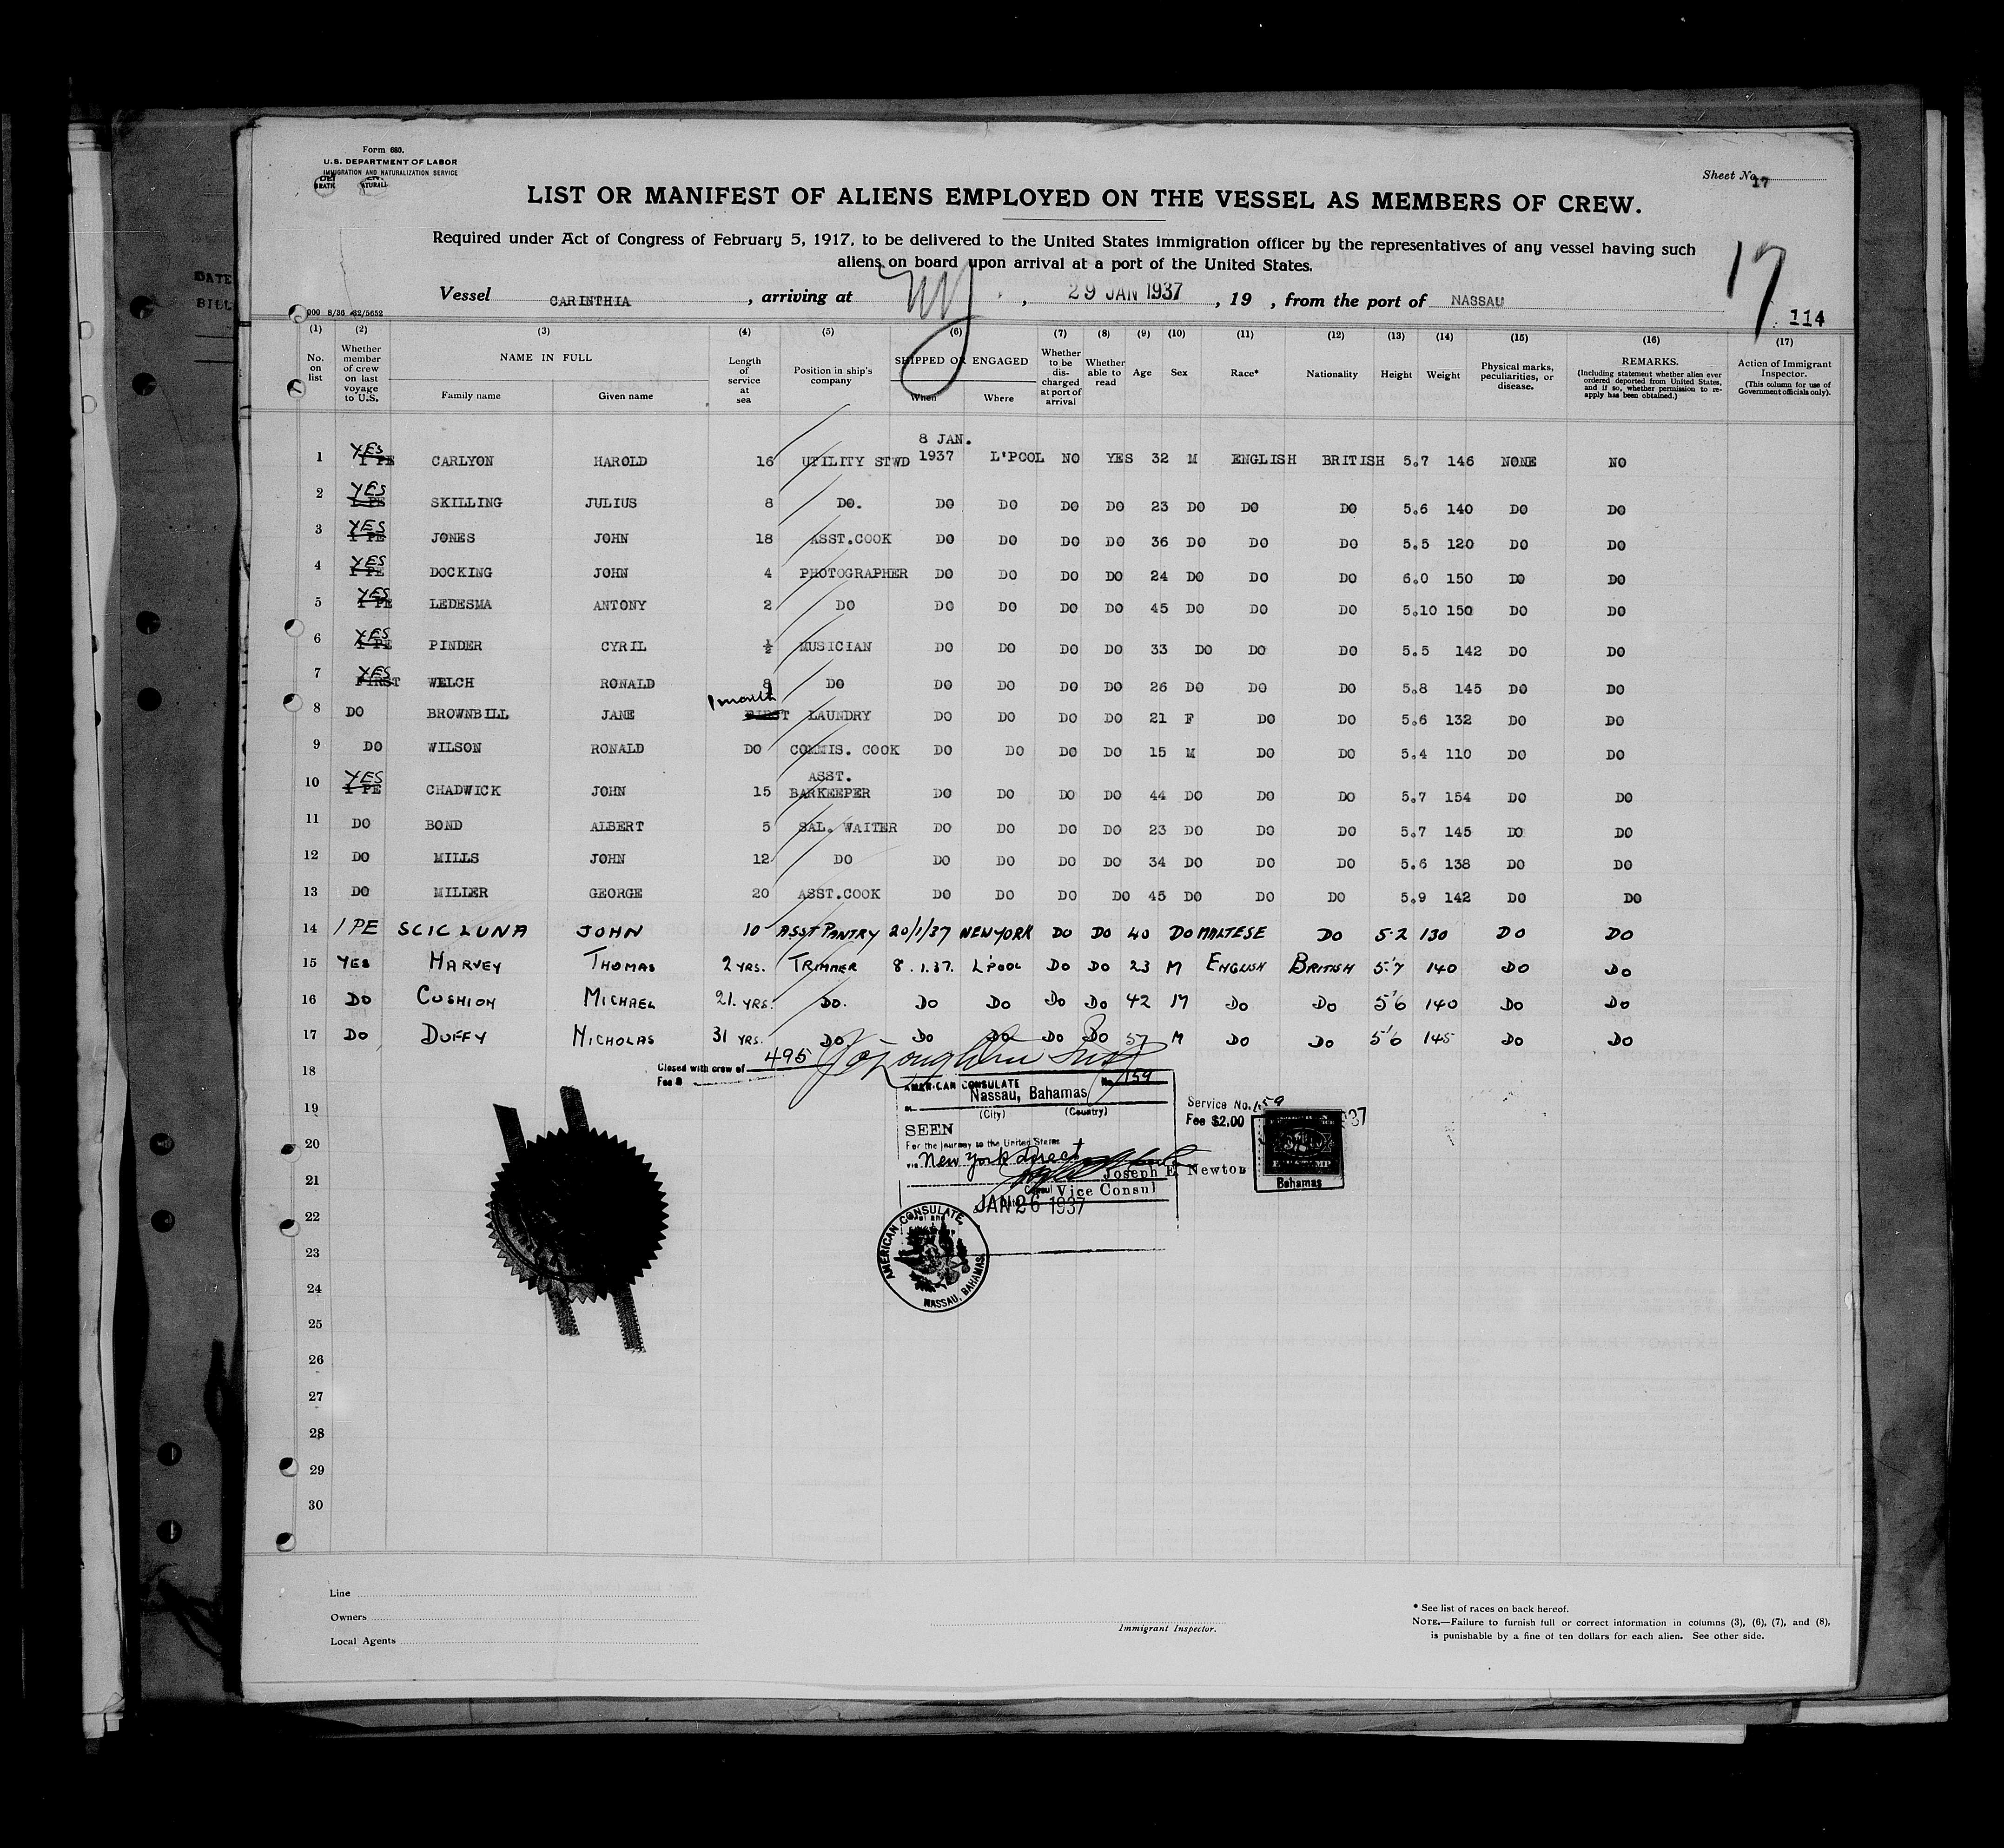 Form 680.
U.S. DEPARTMENT OF LABOR
IMMIGRATION AND NATURALIZATION SERVICE
Sheet No. 17
LIST OR MANIFEST OF ALIENS EMPLOYED ON THE VESSEL AS MEMBERS OF CREW.
Required under Act of Congress of February 5, 1917, to be delivered to the United States immigration officer by the representatives of any vessel having such
aliens on board upon arrival at a port of the United States.
17
Vessel CARINTHIA, arriving at NY, 29 JAN 1937, 19 , from the port of NASSAU
114
(1) No. on list (2) Whether member of crew on last voyage to U.S. (3) NAME IN FULL Family name Given name (4) Length of service at sea (5) Position in ship's company (6) SHIPPED OR ENGAGED When Where (7) Whether to be discharged at port of arrival (8) Whether able to read (9) Age (10) Sex (11) Race* (12) Nationality (13) Height (14) Weight (15) Physical marks, peculiarities, or disease. (16) REMARKS. (Including statement whether alien ever ordered deported from United States, and if so, whether permission to reapply has been obtained.) (17) Action of Immigrant Inspector. (This column for use of Government officials only).
1 YES CARLYON HAROLD 16 UTILITY STWD 8 JAN. 1937 L'POOL NO YES 32 M ENGLISH BRITISH 5.7 146 NONE NO
2 YES SKILLING JULIUS 8 DO. DO DO DO DO 23 DO DO DO 5.6 140 DO DO
3 YES JONES JOHN 18 ASST.COOK DO DO DO DO 36 DO DO DO 5.5 120 DO DO
4 YES DOCKING JOHN 4 PHOTOGRAPHER DO DO DO DO 24 DO DO DO 6.0 150 DO DO
5 YES LEDESMA ANTONY 2 DO DO DO DO DO 45 DO DO DO 5.10 150 DO DO
6 YES PINDER CYRIL ½ MUSICIAN DO DO DO DO 33 DO DO DO 5.5 142 DO DO
7 YES FIRST WELCH RONALD 8 DO DO DO DO DO 26 DO DO DO 5.8 145 DO DO
8 DO BROWNBILL JANE 1 month FIRST LAUNDRY DO DO DO DO 21 F DO DO 5.6 132 DO DO
9 DO WILSON RONALD DO COMMIS. COOK DO DO DO DO 15 M DO DO 5.4 110 DO DO
10 YES CHADWICK JOHN 15 ASST. BARKEEPER DO DO DO DO 44 DO DO DO 5.7 154 DO DO
11 DO BOND ALBERT 5 SAL. WAITER DO DO DO DO 23 DO DO DO 5.7 145 DO DO
12 DO MILLS JOHN 12 DO DO DO DO DO 34 DO DO DO 5.6 138 DO DO
13 DO MILLER GEORGE 20 ASST.COOK DO DO DO DO 45 DO DO DO 5.9 142 DO DO
14 1 PE SCICLUNA JOHN 10 ASST PANTRY 20/1/37 NEW YORK DO DO 40 DO MALTESE DO 5.2 130 DO DO
15 YES HARVEY THOMAS 2 YRS. TRIMMER 8.1.37. L'POOL DO DO 23 M ENGLISH BRITISH 5'7 140 DO DO
16 DO CUSHION MICHAEL 21. YRS. DO. DO DO DO DO 42 M DO DO 5'6 140 DO DO
17 DO DUFFY NICHOLAS 31 YRS. DO DO DO DO DO 57 M DO DO 5'6 145 DO DO
18 Closed with crew of 495
Fee $
AMERICAN CONSULATE No. 159
at Nassau, Bahamas
(City) (Country)
Service No. 159
Fee $2.00
19
SEEN
20
For the journey to the United States
via New York direct
Joseph E. Newton
Bahamas
21
Consul Vice Consul
JAN 26 1937
22
AMERICAN CONSULATE, NASSAU, BAHAMAS.
23
24
25
26
27
28
29
30
Line
Owners
Local Agents
Immigrant Inspector.
* See list of races on back hereof.
NOTE.—Failure to furnish full or correct information in columns (3), (6), (7), and (8),
is punishable by a fine of ten dollars for each alien. See other side.